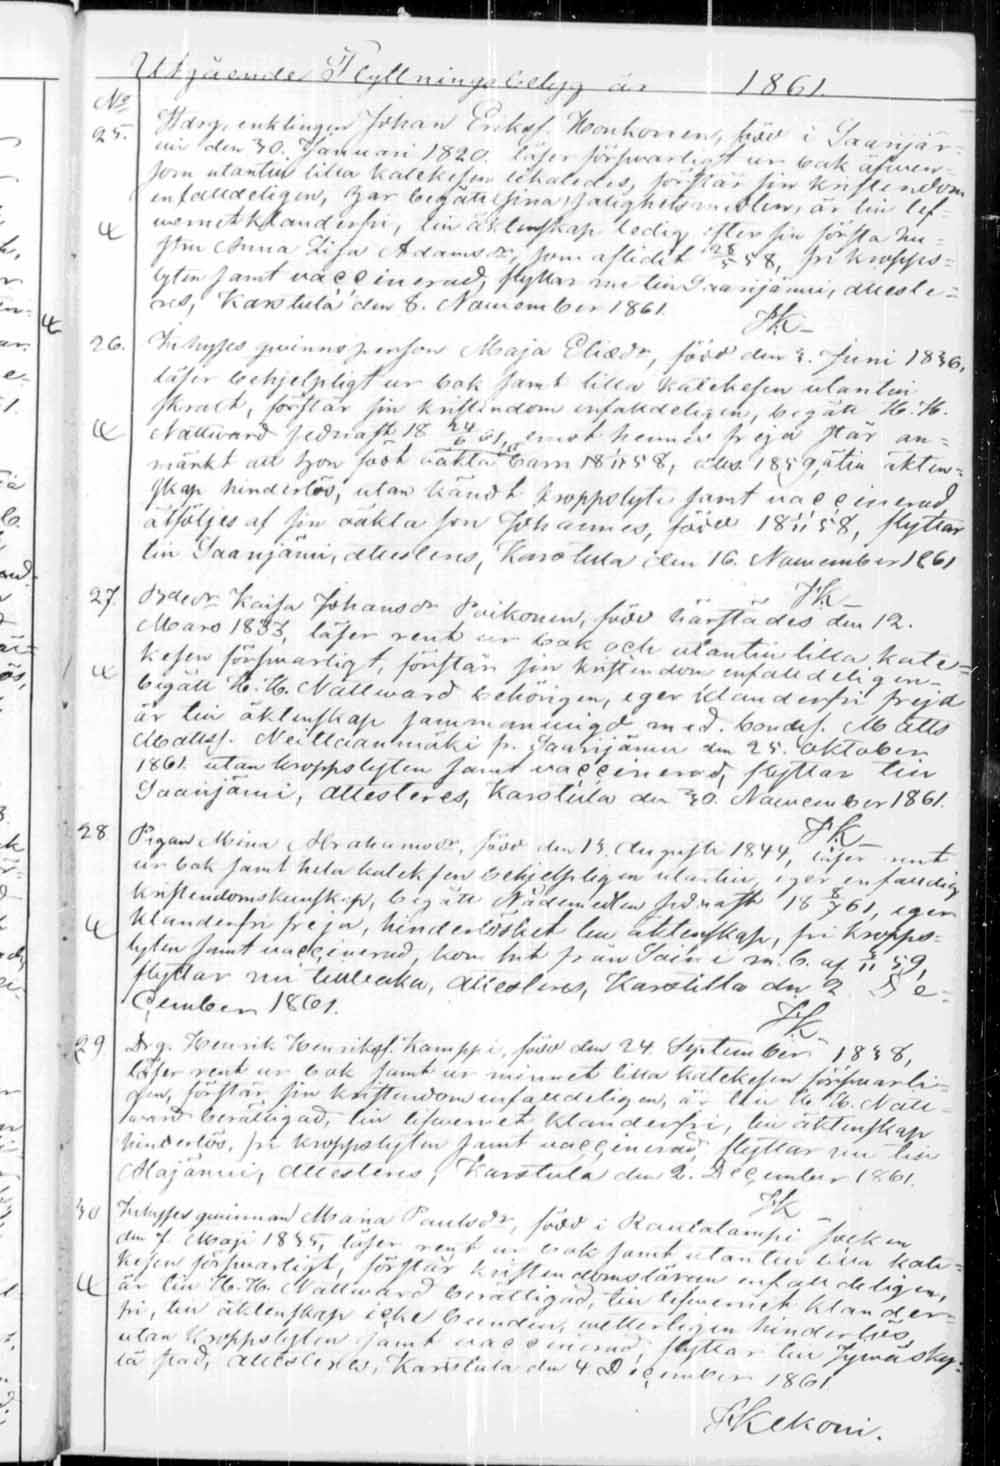 Utgående Flyttningsbetyg år 1861.
No
25. Torp. enklingen Johan Eriksf. Honkonen, född i Saarijär-
wi den 30. Januari 1820. läser försvarligt ur bok äfwen-
som utantill lilla katekesen, förstår sin kristendom
enfalldeligen, har begått sina salighetsmedlen, är till lef-
wernet klanderfri, till äktenskap ledig efter sin första hu-
stru Anna Lisa Adamsdr, som aflidit 28/5 58, fri kropps-
lyten samt vaccinerad, flyttar nu till Saarijärwi, atteste-
res, Karstula den 8. November 1861.
26. Inhyses qwinnsperson Maja Eliædr, född den 3. Juni 1836,
läser behjelpligt ur bok samt lilla katekesen utantill
förstår sin kristendom enfalldeligen, begått H. H.
Nattward sednast 18 24/6 61, emot hennes frejd står an-
märkt att hon född oäkta barn 18 1/11 58, till äkten-
skap hinderlös, utan kändt kroppslyte samt vaccinerad
åtföljes af sin oäkta son Johannes, född 18 1/11 58, flyttar
till Saarijärwi, attesteres, Karstula den 16. November 1861
27. Bdedr Kaisa Johansdr Poikonen, född härstädes den 12.
Mars 1833, läser rent ur bok och utantill lilla kate-
kesen försvarligt, förstår sin kristendom enfalldeligen
begått H. H. Nattward behörigen, eger klanderfri frejd
är till äktenskap sammanwigd med bondes. Matts
Mattsf. fr. Saarijärwi den 25. Oktober
1861. utan kroppslyten samt vaccinerad, flyttar till
Saarijärwi, attesteres, Karstula den 30. November 1861.
28. Pigan Mina Abrahamsdr, född den 13. Augusti 1844, läser rent
ur bok samt hela katekesen behjelpligen utantill, eger enfalldig
kristendomskunskap, begått Nådemedlen sednast 18 8/7 61, eger
klanderfri frejd, hinderlöshet till äktenskap, fri kropps-
lyten samt vaccinerad, kom hit från Soini m. b. af 3/11 59,
flyttar nu tillbaka, attesteres, Karstula den 2 De-
cember 1861.
29. Drg. Henrik Henriksf. Kamppi, född den 24. September 1838,
läser rent ur bok samt ur minnet lilla katekesen försvarli-
gen, förstår sin kristendom enfalldeligen, är till H. H. Natt-
ward berättigad, till lefwernet klanderfri, till äktenskap
hinderlös, fri kroppslyten samt vaccinerad, flyttar nu till
Alajärwi, attesteres, Karstula den 2. December 1861.
30 Inhyses qwinnan Maria Paulsdr, född i Rautalampi socken
den 7. Maji 1835, läser rent ur bok samt utantill lilla kate-
kesen försvarligt, förstår kristendomsläran enfalldeligen,
är till H. H. Nattward berättigad, till lefwernet klander-
fri, till äktenskap icke bunden, hinderlös,
utan kroppslyten samt vaccinerad, flyttar till Jywäsky-
lä stad, attesteres, Karstula den 4 December 1861.
Kekoni.